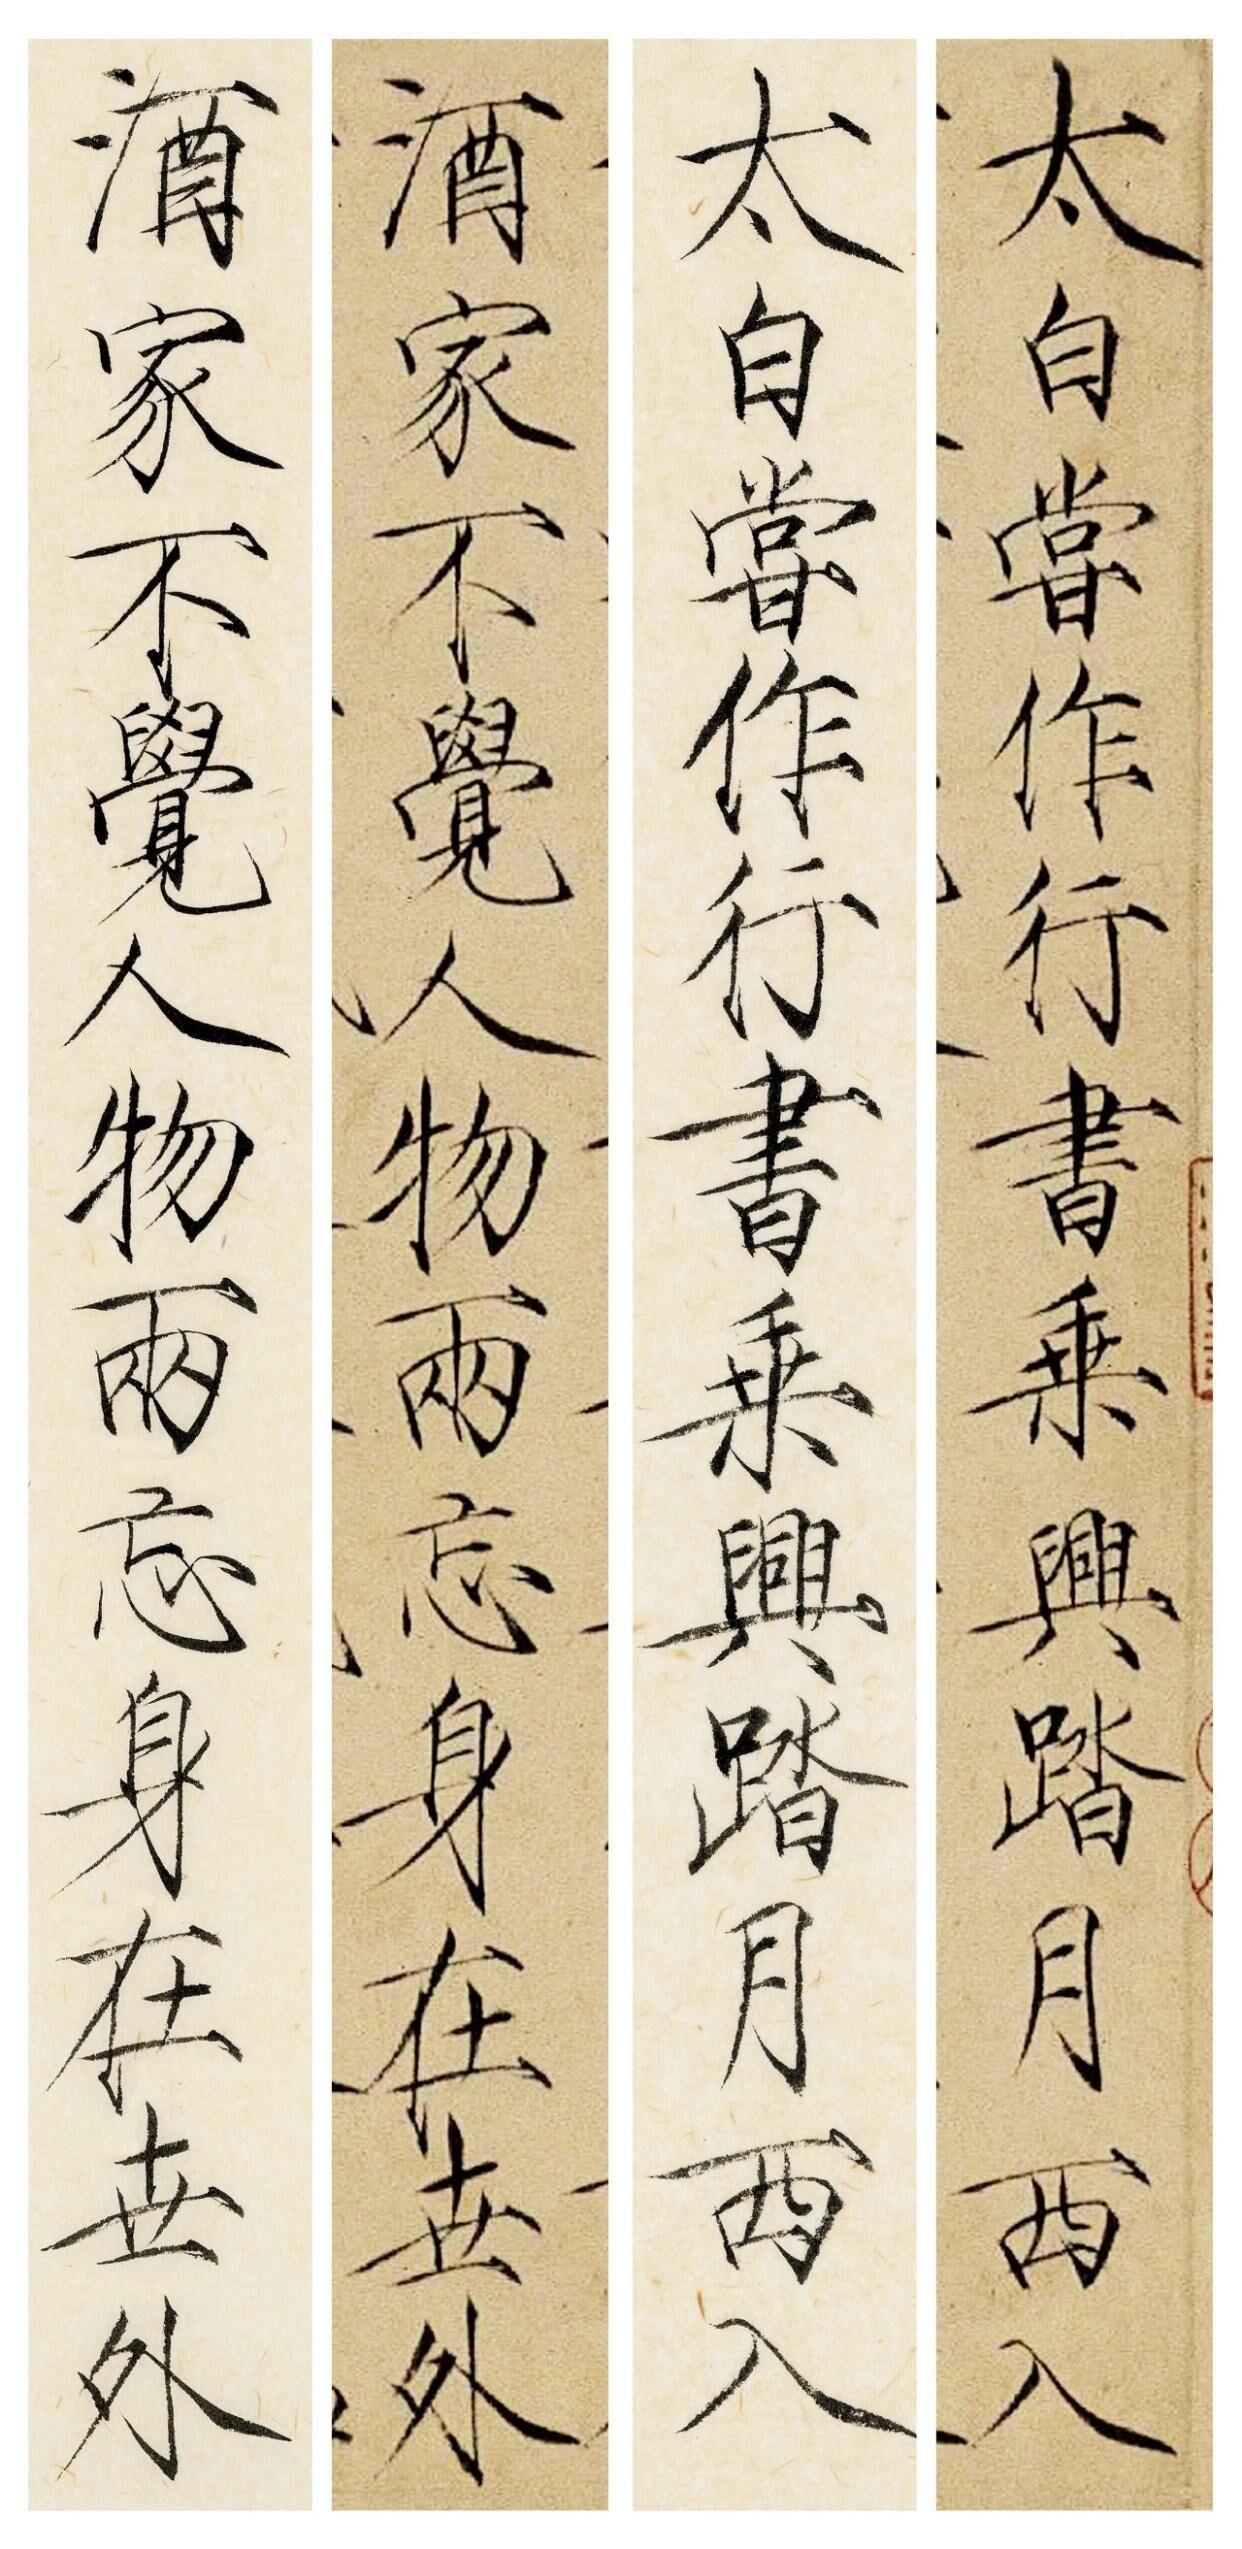 太白嘗作行書乗興踏月西入
太白嘗作行書乗興踏月西入
酒家不覺人物兩忘身在世外
酒家不覺人物兩忘身在世外